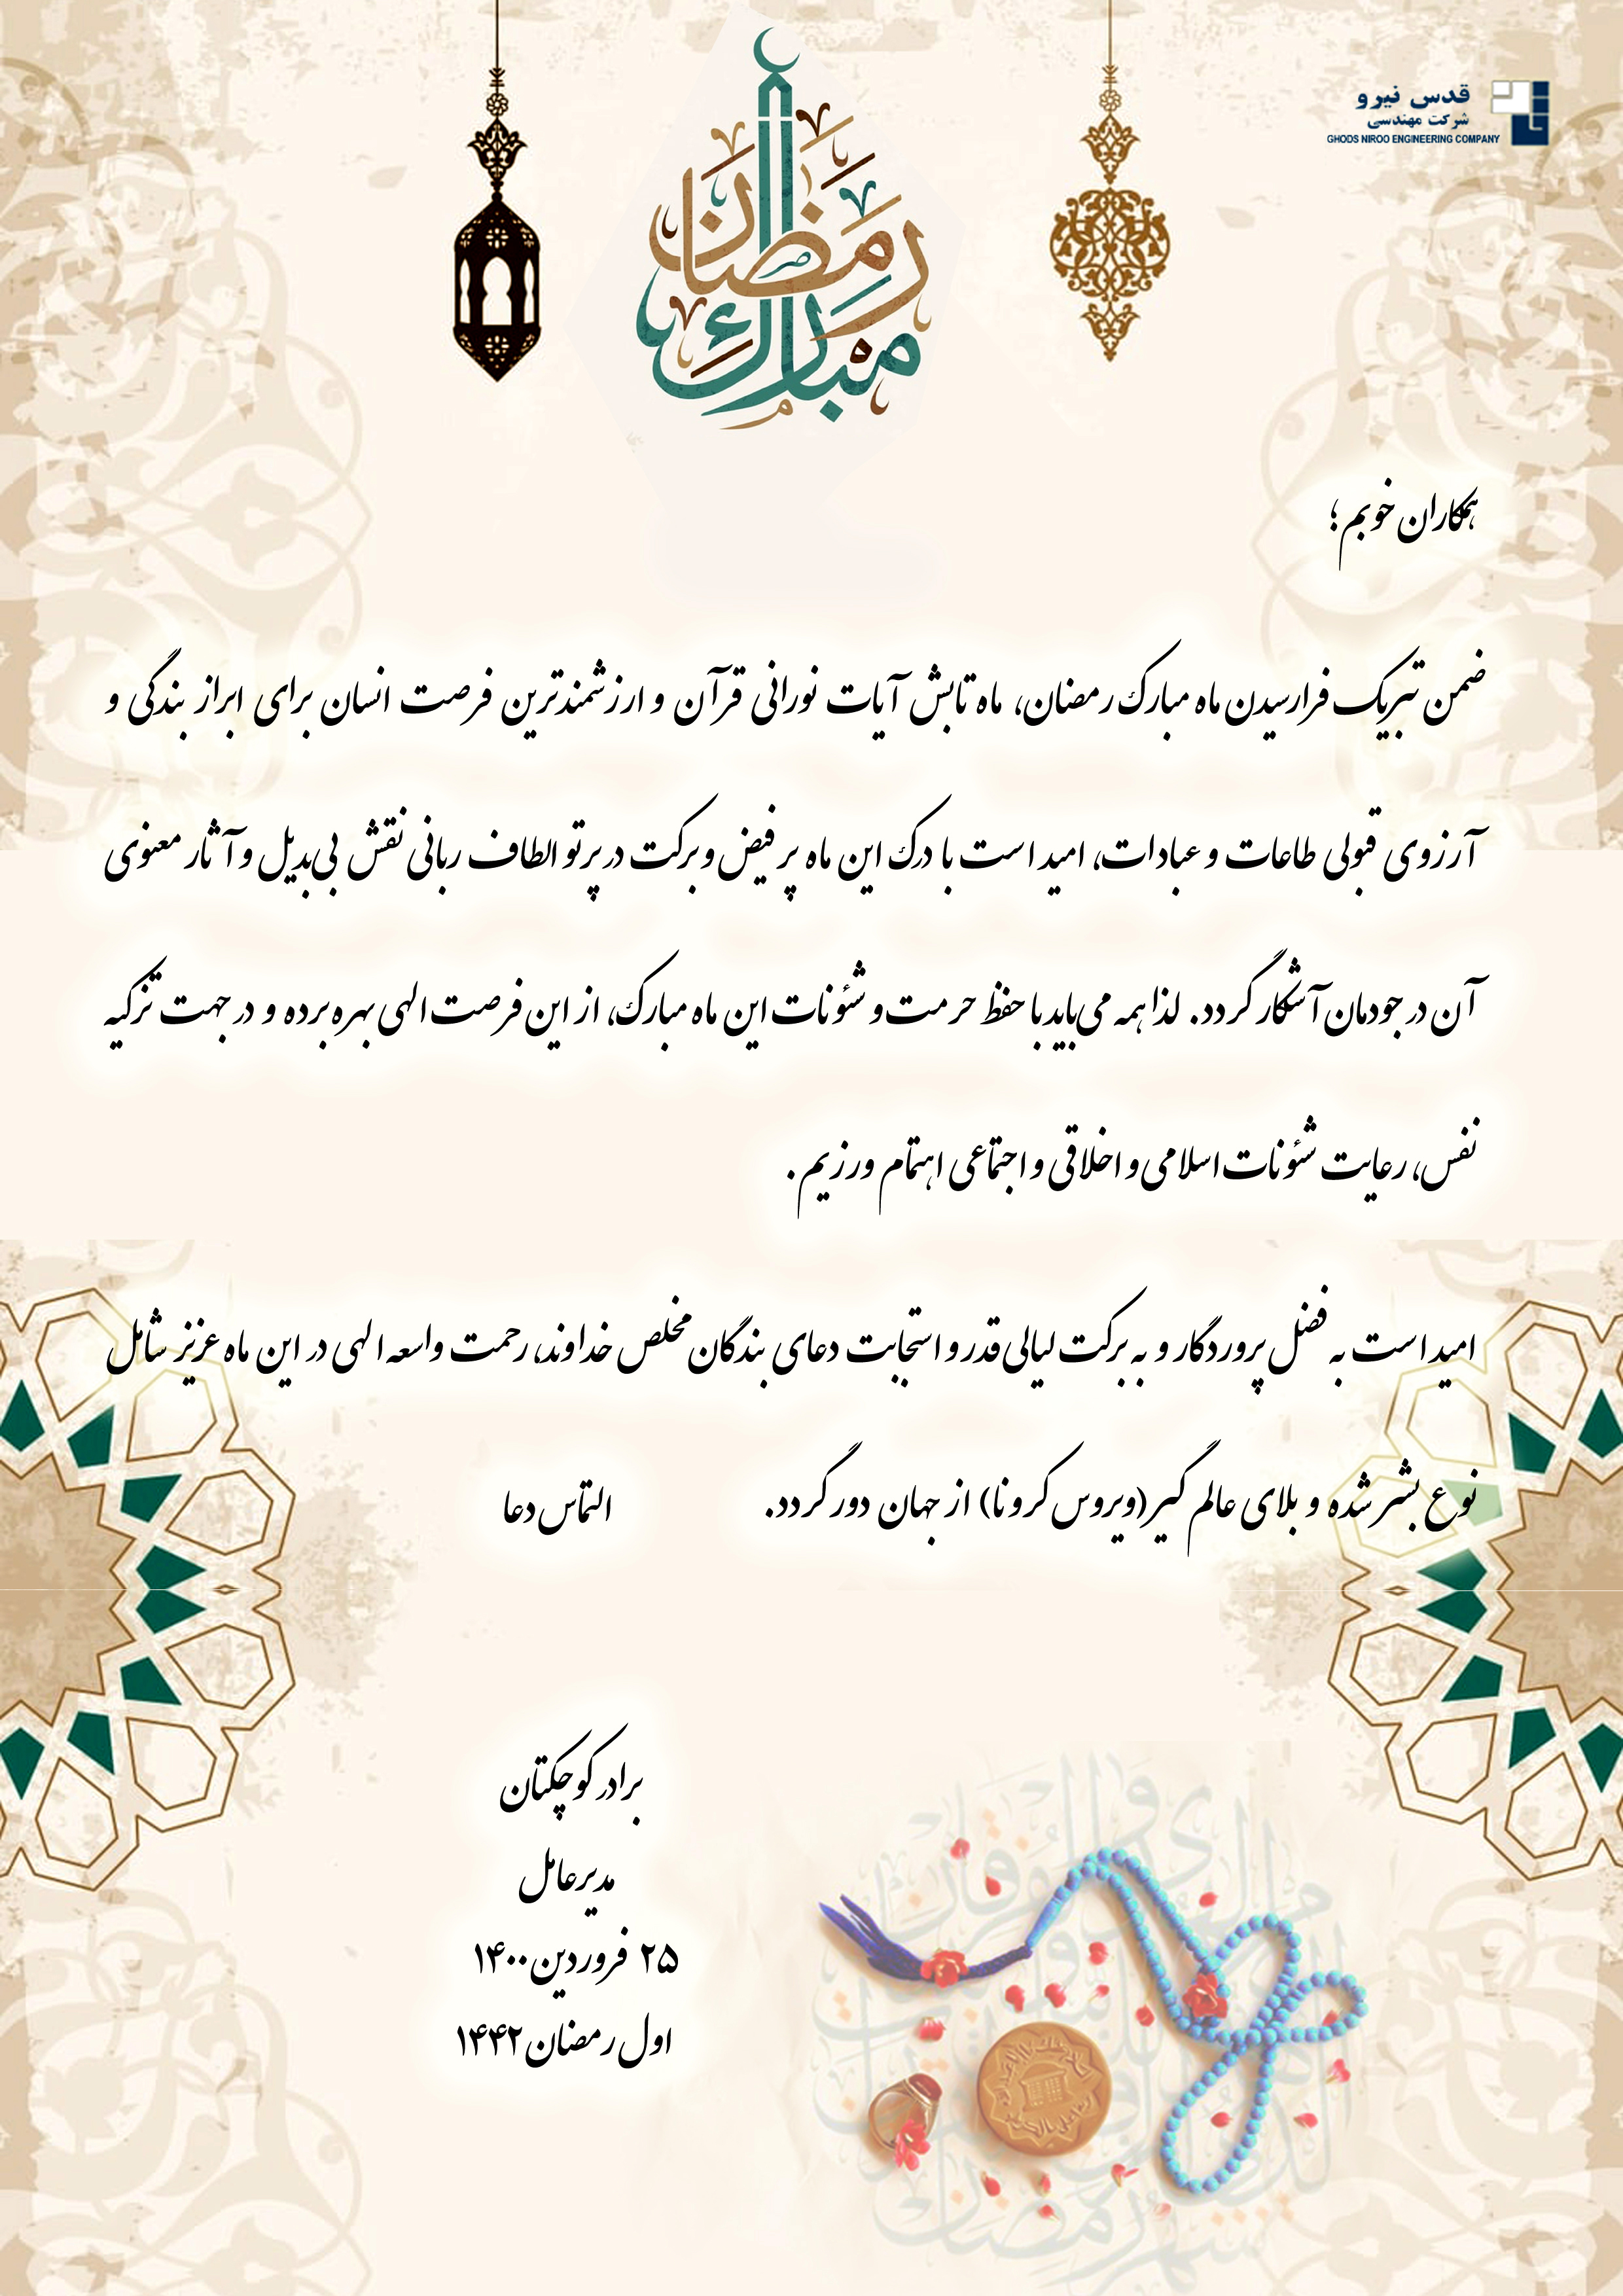 قدس نیرو
شرکت مهندسی
GHODS NIROO ENGINEERING COMPANY
رمضان
مبارك
همکاران خوبم ؛
ضمن تبریک فرارسیدن ماه مبارک رمضان، ماه تابش آیات نورانی قرآن و ارزشمندترین فرصت انسان برای ابراز بندگی و
آرزوی قبولی طاعات و عبادات، امید است با درک این ماه پر فیض و برکت در پرتو الطاف ربانی نقش بی‌بدیل و آثار معنوی
آن در جودمان آشکار گردد. لذا همه می‌باید با حفظ حرمت و شئونات این ماه مبارک، از این فرصت الهی بهره برده و در جهت تزکیه
نفس، رعایت شئونات اسلامی و اخلاقی و اجتماعی اهتمام ورزیم.
امید است به فضل پروردگار و به برکت لیالی قدر و استجابت دعای بندگان مخلص خداوند، رحمت واسعه الهی در این ماه عزیز شامل
نوع بشر شده و بلای عالم گیر (ویروس کرونا) از جهان دور گردد.
التماس دعا
برادر کوچکتان
مدیرعامل
۲۵ فروردین ۱۴۰۰
اول رمضان ۱۴۴۲